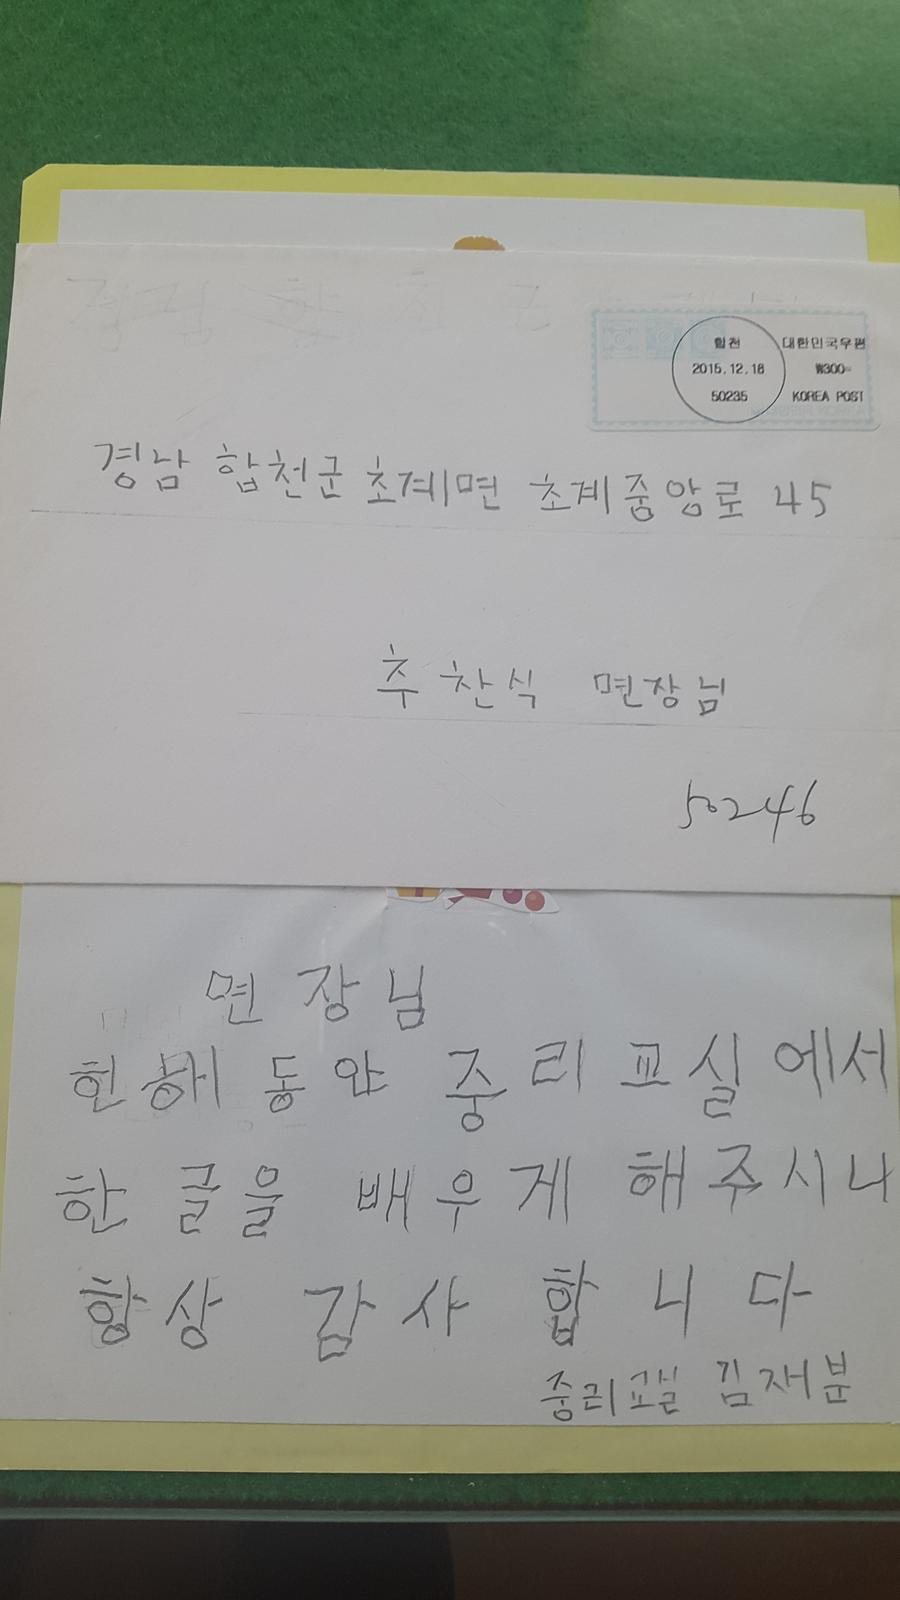 합천 대한민국우편
2015.12.18 ₩300
50235 KOREA POST
경남 합천군 초계면 초계중앙로 45
추찬식 면장님
50246
면장님
헌해 동안 중리 교실에서
한글을 배우게 해주시니
항상 감사 합니다
중리교실 김재분